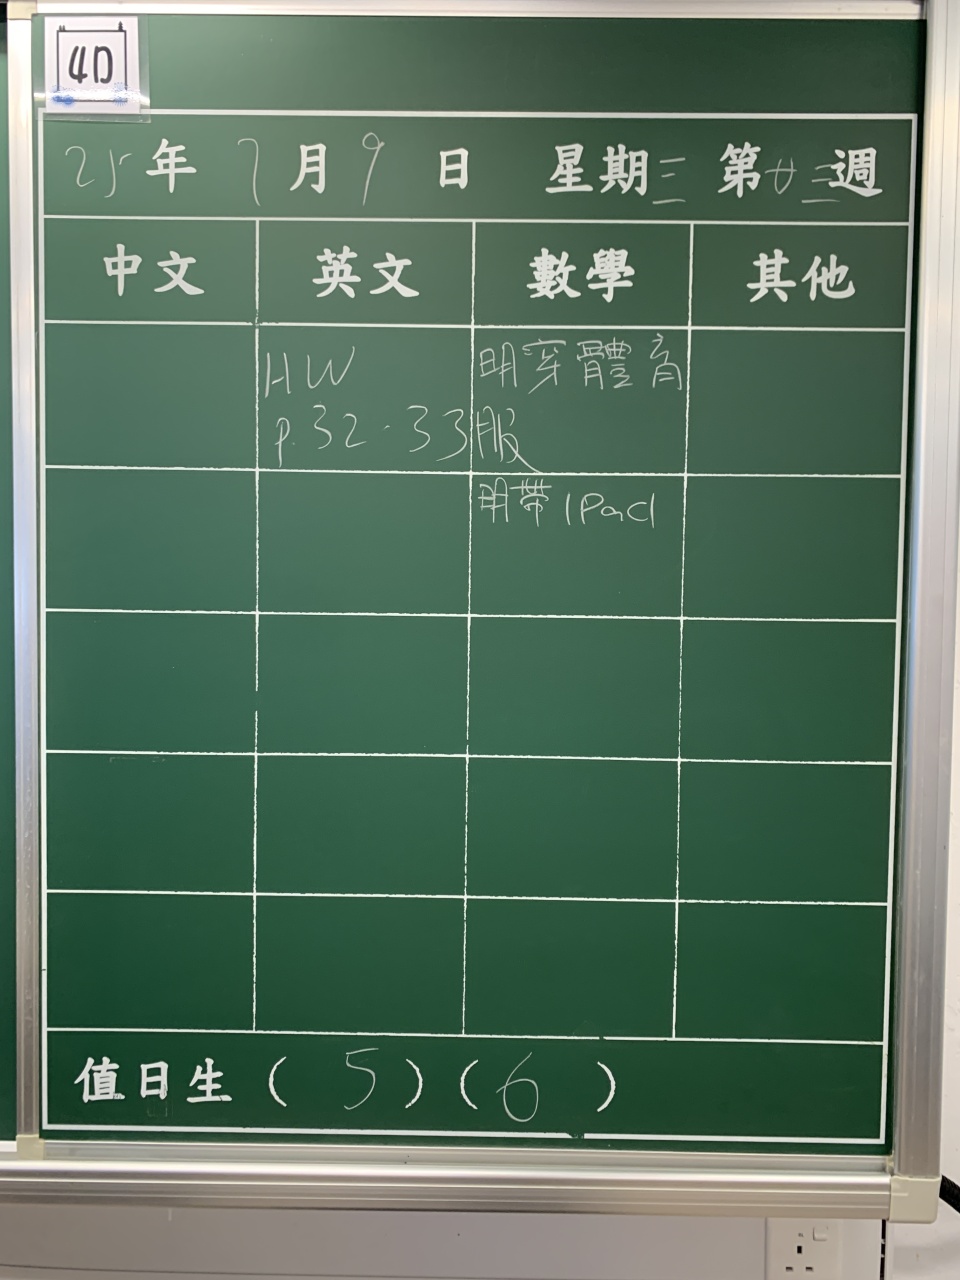 4D
25年7月9日 星期三 第廿三週
中文 英文 數學 其他
HW
p.32-33
明穿體育
服
明帶iPad
值日生 ( 5 ) ( 6 )